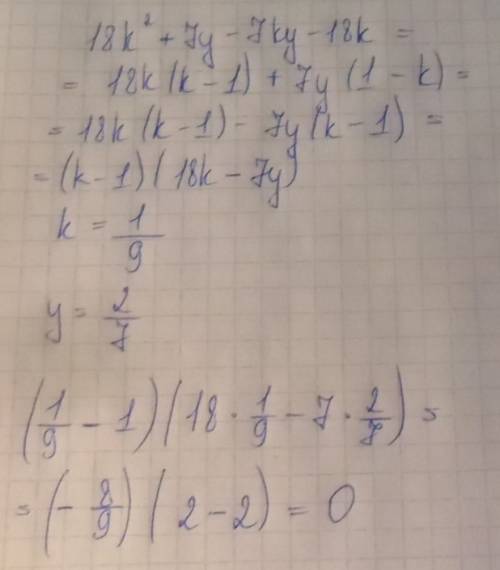 18k² + 7y - 7ky - 18k =
= 18k(k-1) + 7y(1-k) =
= 18k(k-1) - 7y(k-1) =
= (k-1)(18k-7y)
k = 1/9
y = 2/7
(1/9 - 1)(18 · 1/9 - 7 · 2/7) =
= (- 8/9)(2-2) = 0